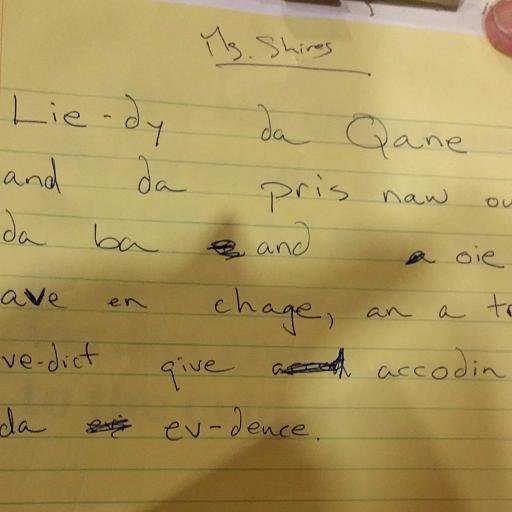 Ms. Shires
Lie-dy da Qane
and da pris naw ou
da ba and a oie
ave en chage, an a tr
ve-dict give accodin
da ev-dence.